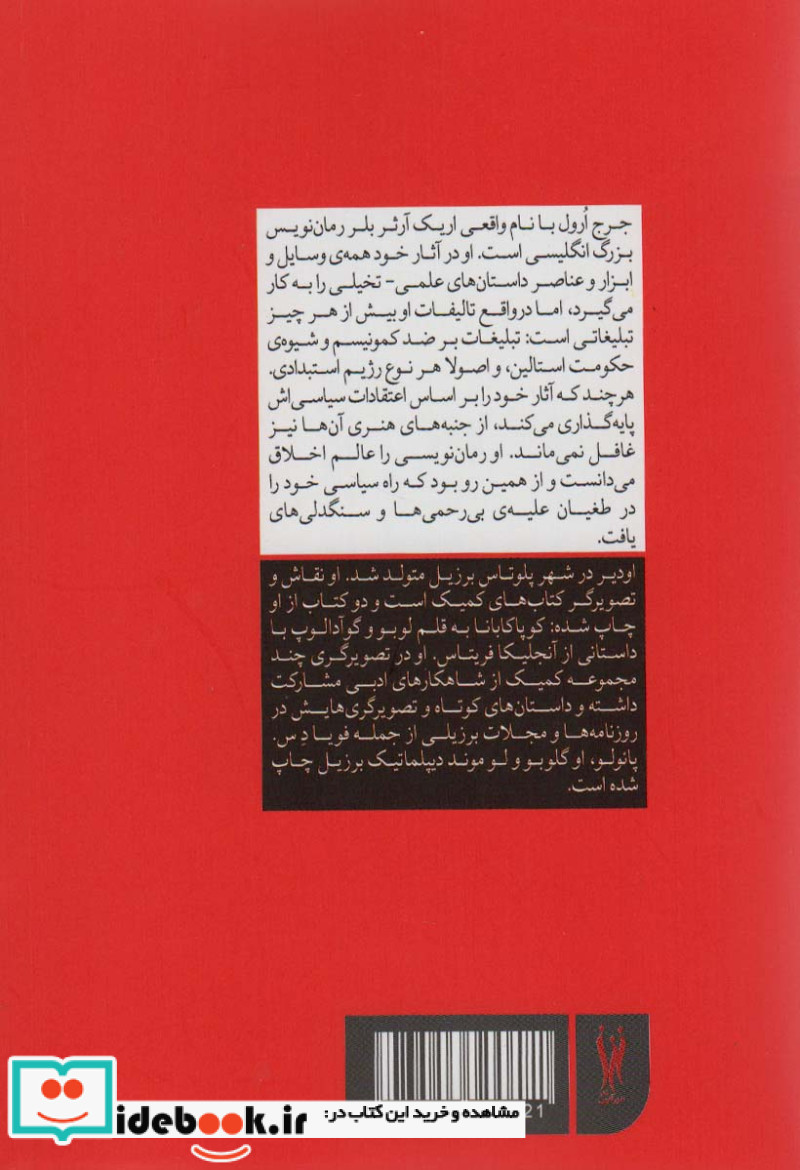 جرج اُرول با نام واقعی اریک آرثر بلر رمان‌نویس
بزرگ انگلیسی است. او در آثار خود همه‌ی وسایل و
ابزار و عناصر داستان‌های علمی- تخیلی را به کار
می‌گیرد، اما درواقع تالیفات او بیش از هر چیز
تبلیغاتی است: تبلیغات بر ضد کمونیسم و شیوه‌ی
حکومت استالین، و اصولا هر نوع رژیم استبدادی.
هرچند که آثار خود را بر اساس اعتقادات سیاسی‌اش
پایه‌گذاری می‌کند، از جنبه‌های هنری آن‌ها نیز
غافل نمی‌ماند. او رمان‌نویسی را عالم اخلاق
می‌دانست و از همین رو بود که راه سیاسی خود را
در طغیان علیه‌ی بی‌رحمی‌ها و سنگدلی‌های
یافت.
اودیر در شهر پلوتاس برزیل متولد شد. او نقاش و
تصویرگر کتاب‌های کمیک است و دو کتاب از او
چاپ شده: کوپاکابانا به قلم لوبو و گوآدالوپ با
داستانی از آنجلیکا فریتاس. او در تصویرگری چند
مجموعه کمیک از شاهکارهای ادبی مشارکت
داشته و داستان‌های کوتاه و تصویرگری‌هایش در
روزنامه‌ها و مجلات برزیلی از جمله فویا دِ س.
پائولو، او گلوبو و لو موند دیپلماتیک برزیل چاپ
شده است.
21
مشاهده و خرید این کتاب در:
idebook.ir